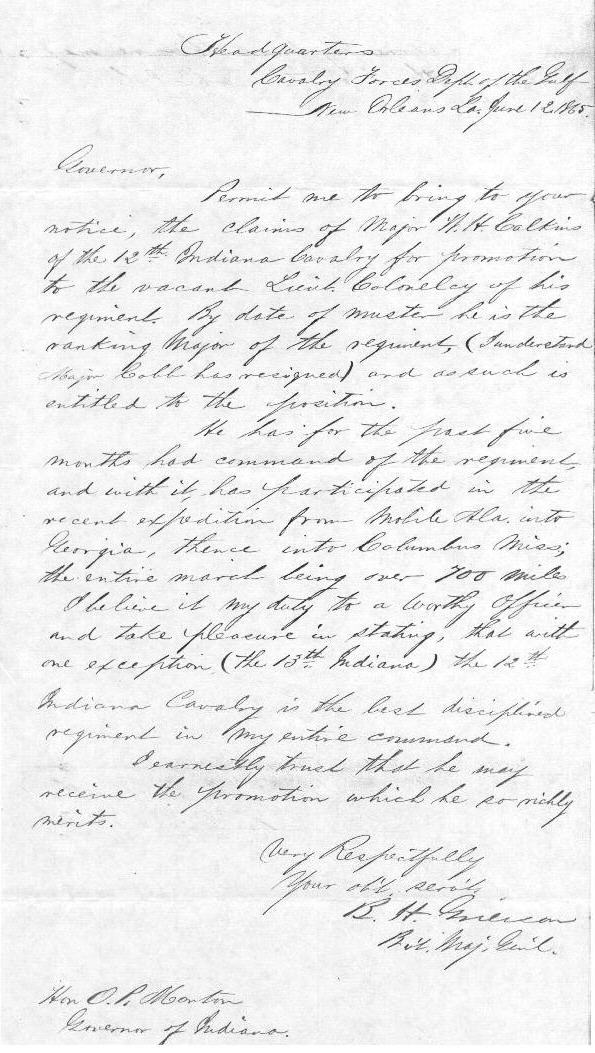 Headquarters
Cavalry Forces Dept. of the Gulf
New Orleans La. June 12. 1865.
Governor,
Permit me to bring to your
notice, the claims of Major W. H. Calkins
of the 12th Indiana Cavalry for promotion
to the vacant Lieut. Colonelcy of his
regiment. By date of muster he is the
ranking Major of the regiment, (I understand
Major Cobb has resigned) and as such is
entitled to the position.
He has for the past five
months had command of the regiment
and with it, has participated in the
recent expedition from Mobile Ala. into
Georgia, thence into Columbus Miss;
the entire march being over 700 miles
I believe it my duty to a worthy Officer
and take pleasure in stating, that with
one exception (the 13th Indiana) the 12th
Indiana Cavalry is the best disciplined
regiment in my entire command.
I earnestly trust that he may
receive the promotion which he so richly
merits.
Very Respectfully
Your obt. servt.
B. H. Grierson
Bvt. Maj. Genl.
Hon O. P. Morton
Governor of Indiana.